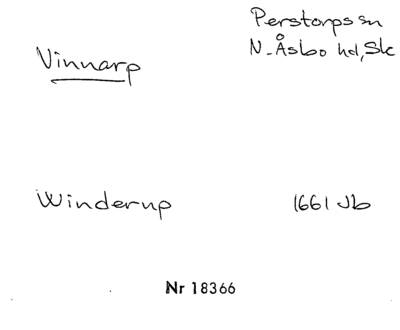 Perstorps sn
Vinnarp
N. Åsbo hd, Sk
Winderup
1661 Jb
Nr 18366